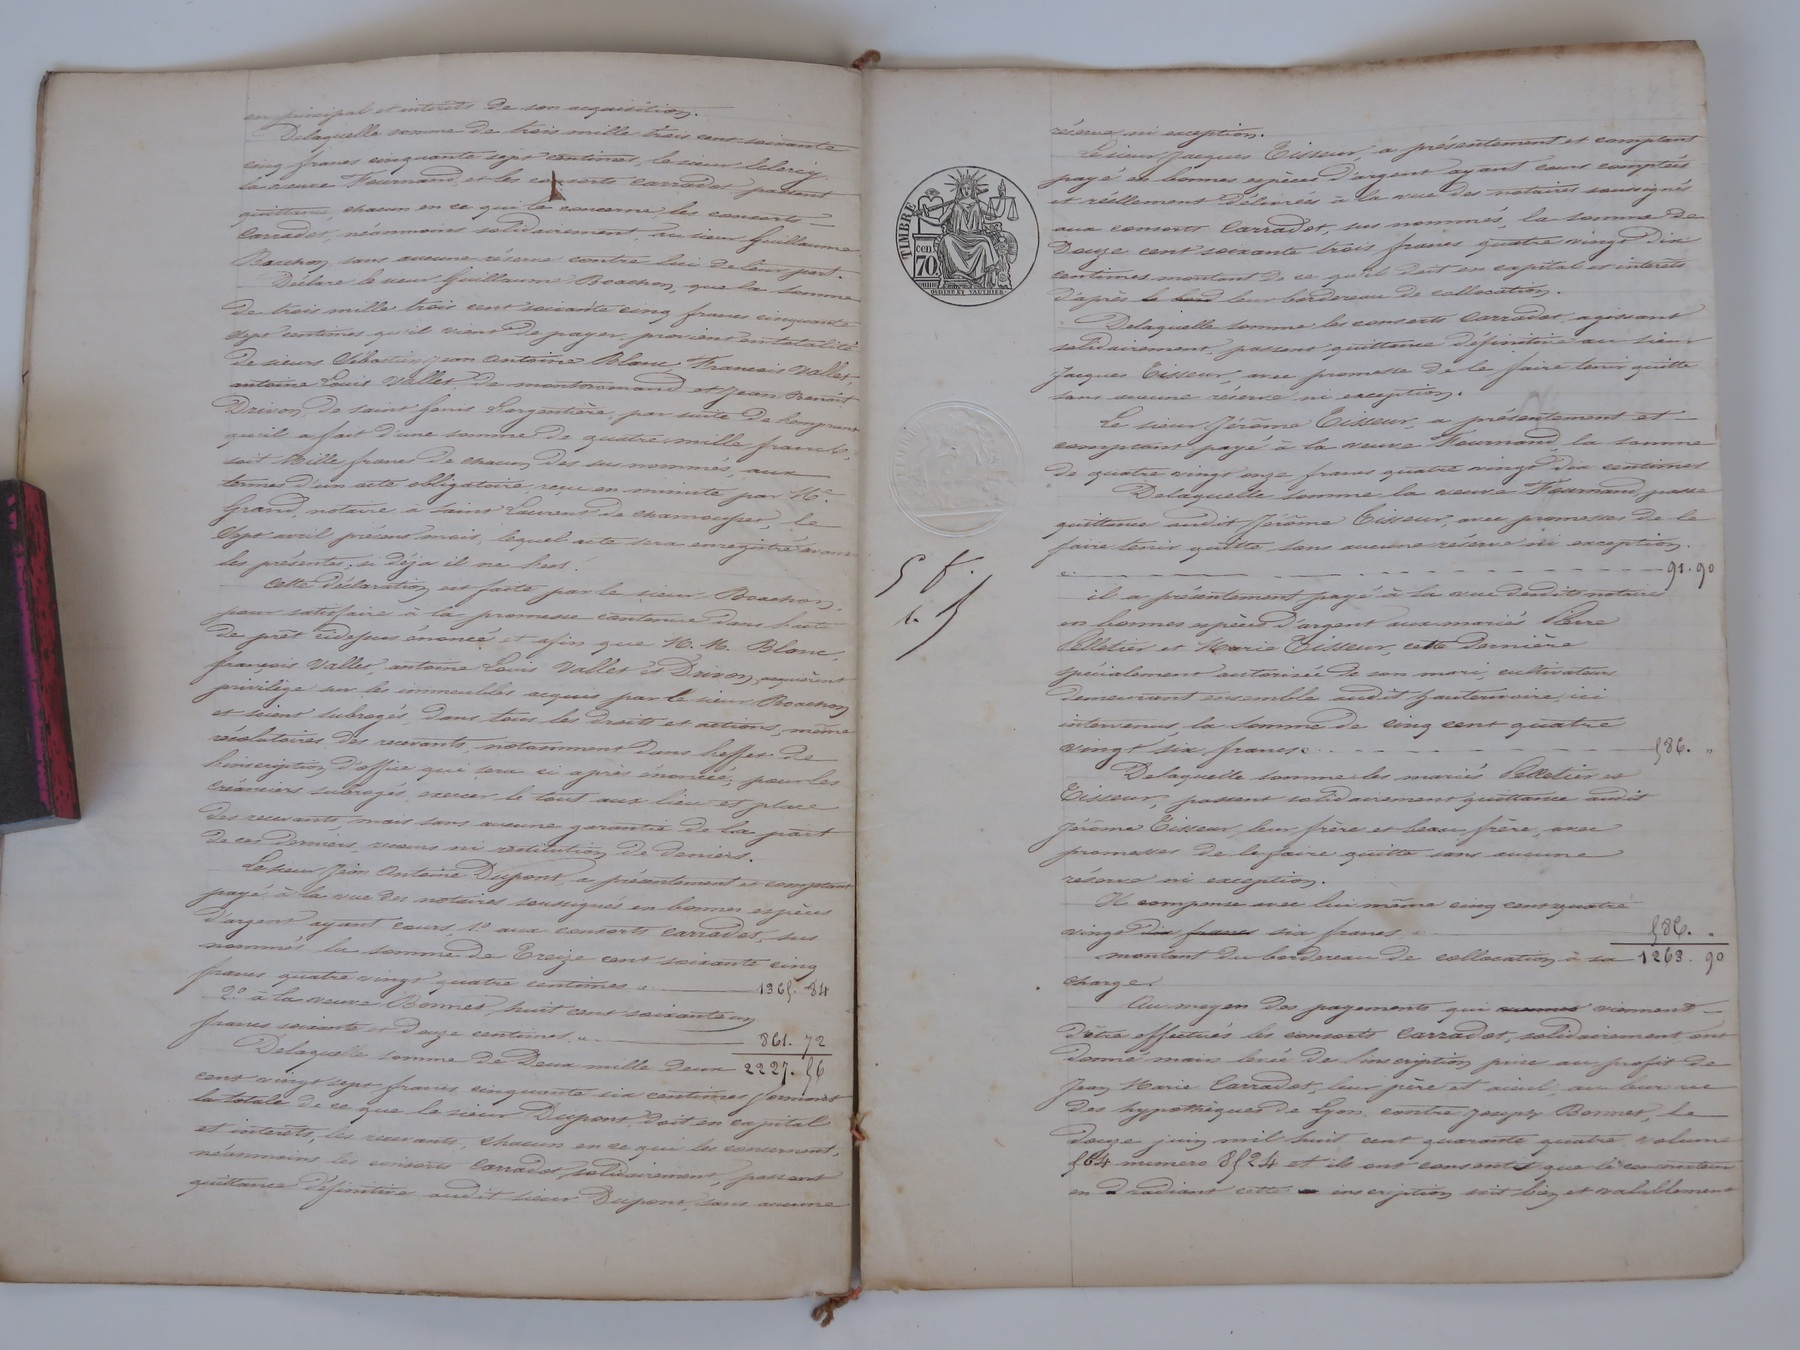 en principal et interêts de son acquisition.
Delaquelle somme de trois mille trois cent soixante
cinq francs cinquante sept centimes, le sieur
la veuve Fournand, et les consorts Carradot passent
quittance, chacun en ce qui le concerne, les consorts
Carradot, néanmoins solidairement, au sieur Guillaume
Boachon, sans aucune réserve contre lui de leur part.
Déclare le sieur Guillaume Boachon, que la somme
de trois mille trois cent soixante cinq francs cinquante
sept centimes qu'il vient de payer, provient en totalité
de sieurs Sébastien Jean Antoine Blanc, François Vallet,
antoine Louis Vallet de montromand et Jean Benoit
Drivon, de saint Genis l'argentière, par suite de l'emprunt
qu'il a fait d'une somme de quatre mille francs,
soit Mille francs de chacun des sus nommés, aux
termes d'un acte obligatoire, reçu en minute par Me.
Grand, notaire à saint Laurent de chamousset, le
Sept avril présent mois, lequel acte sera enregistré avant
les présentes, si déja il ne l'est.
Cette déclaration est faite par le sieur Boachon,
pour satisfaire à la promesse contenue dans l'acte
de prêt cidessus énoncé et afin que M. M. Blanc,
françois Vallet, antoine Louis Vallet et Drivon, acquièrent
privilège sur les immeubles acquis par le sieur Boachon
et soient subrogés, dans tous les droits et actions, même
résolutoires des recevants, notamment dans l'effet de
l'inscription d'office qui sera ci après énoncée, pour les
créanciers subrogés, exercer le tout aux lieu et place
des recevants, mais sans aucune garantie de la part
de ces derniers, recours ni restitution de deniers.
Le sieur Jean Antoine Dupont, a présentement et comptant
payé à la vue des notaires soussignés en bonnes espèces
d'argent ayant cours, 1.o aux consorts Carradot, sus
nommés la somme de Treize cent soixante cinq
francs quatre vingt quatre centimes 1365. 84
2.o à la veuve Bonnet, huit cent soixante un
francs soixante et douze centimes 861. 72
Delaquelle somme de Deux mille deux 2227. 56
cent vingt sept francs cinquante six centimes formant
la totale de ce que le sieur Dupont doit en capital
et interêts, les recevants, chacun en ce qui les concernent,
néanmoins les consorts Carradot, solidairement, passent
quittance définitive audit sieur Dupont, sans aucune
réserve ni exception.
Le sieur Jacques Tisseur, a présentement et comptant
payé en bonnes espèces d'argent ayant cours comptées
et réellement délivrées à la vue des notaires soussignés
aux consorts Carradot, sus nommés, la somme de
Douze cent soixante trois francs quatre vingt dix
centimes montant de ce qu'il doit en capital et interets
d'après leur bordereau de collocation.
Delaquelle somme les consorts Carradot, agissant
solidairement, passent quittance définitive au sieur
Jacques Tisseur, avec promesse de le faire tenir quitte
sans aucune réserve ni exception.
Le sieur Jérôme Tisseur, a présentement et
comptant payé à la veuve Fournand, la somme
de quatre vingt onze francs quatre vingt dix centimes
Delaquelle somme la veuve Fournand passe
quittance audit Jérôme Tisseur, avec promesses de le
faire tenir quitte sans aucune réserve ni exception.
91. 90
il a présentement payé à la vue desdits notaires
en bonnes espèces d'argent aux mariés Pierre
Pelletier et Marie Tisseur, cette dernière
spécialement autorisée de son mari, cultivateurs
demeurant ensemble audit hauterivoire, ici
intervenus, la somme de cinq cent quatre
vingt six francs 586. "
Delaquelle somme les mariés Pelletier et
Tisseur, passent solidairement quittance audit
Jérôme Tisseur, leur frère et beau frère, avec
promesses de le faire quitte sans aucune
réserve ni exception.
Il compense avec lui même cinq cent quatre
vingt dix francs six francs 586. "
montant du bordereau de collocation à sa 1263. 90
charge.
Au moyen des payements qui viennent
d'être effectués les consorts Carradot, solidairement ont
donné main levée de l'inscription prise au profit de
Jean Marie Carradot, leur père et aieul, au bureau
des hypothèques de Lyon, contre Joseph Bonnet, le
douze juin mil huit cent quarante quatre, volume
564 numero 8524 et ils ont consentis que le conservateur
en radiant cette inscription soit bien et valablement
TIMBRE
cen.
70